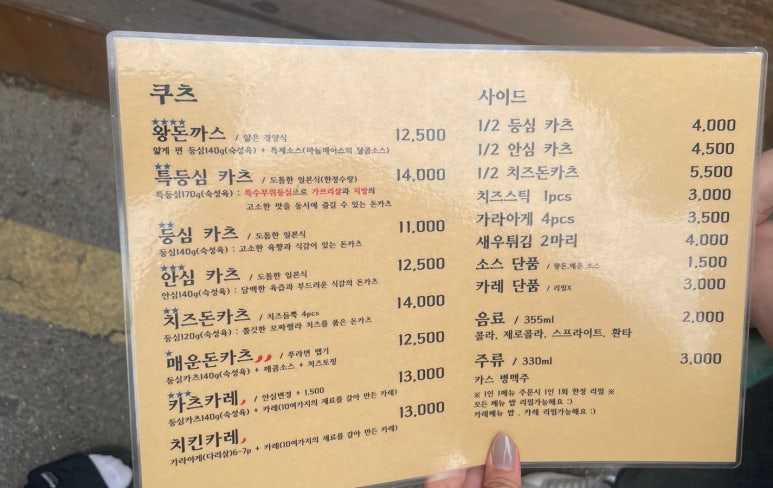 쿠츠
★★★★
왕돈까스 / 얇은 경양식 12,500
얇게 편 등심140g(숙성육) + 특제소스(마늘베이스의 달콤소스)
★★
특등심 카츠 / 도톰한 일본식(한정수량) 14,000
특등심170g(숙성육) : 특수부위등심으로 가프리살과 지방의
고소한 맛을 동시에 즐길 수 있는 돈카츠
★★
등심 카츠 / 도톰한 일본식 11,000
등심140g(숙성육) : 고소한 육향과 식감이 있는 돈카츠
★★★
안심 카츠 / 도톰한 일본식 12,500
안심140g(숙성육) : 담백한 육즙과 부드러운 식감의 돈카츠
★★
치즈돈카츠 / 치즈듬뿍 4pcs 14,000
등심120g(숙성육) : 쫄깃한 모짜렐라 치즈를 품은 돈카츠
★
매운돈카츠 / 푸라면 맵기 12,500
등심카츠140g(숙성육) + 매콤소스 + 치즈토핑
★★★
카츠카레 / 안심변경 + 1,500 13,000
등심카츠140g(숙성육) + 카레(10여가지의 재료를 갈아 만든 카레)
치킨카레 13,000
가라아게(다리살)6-7p + 카레(10여가지의 재료를 갈아 만든 카레)
사이드
1/2 등심 카츠 4,000
1/2 안심 카츠 4,500
1/2 치즈돈카츠 5,500
치즈스틱 1pcs 3,000
가라아게 4pcs 3,500
새우튀김 2마리 4,000
소스 단품 / 왕돈,매운 소스 1,500
카레 단품 / 리필X 3,000
음료 / 355ml 2,000
콜라, 제로콜라, 스프라이트, 환타
주류 / 330ml 3,000
카스 병맥주
※ 1인 1메뉴 주문시 1인 1회 한정 리필 ※
모든메뉴 밥 리필가능해요 :)
카레메뉴 밥 , 카레 리필가능해요 :)